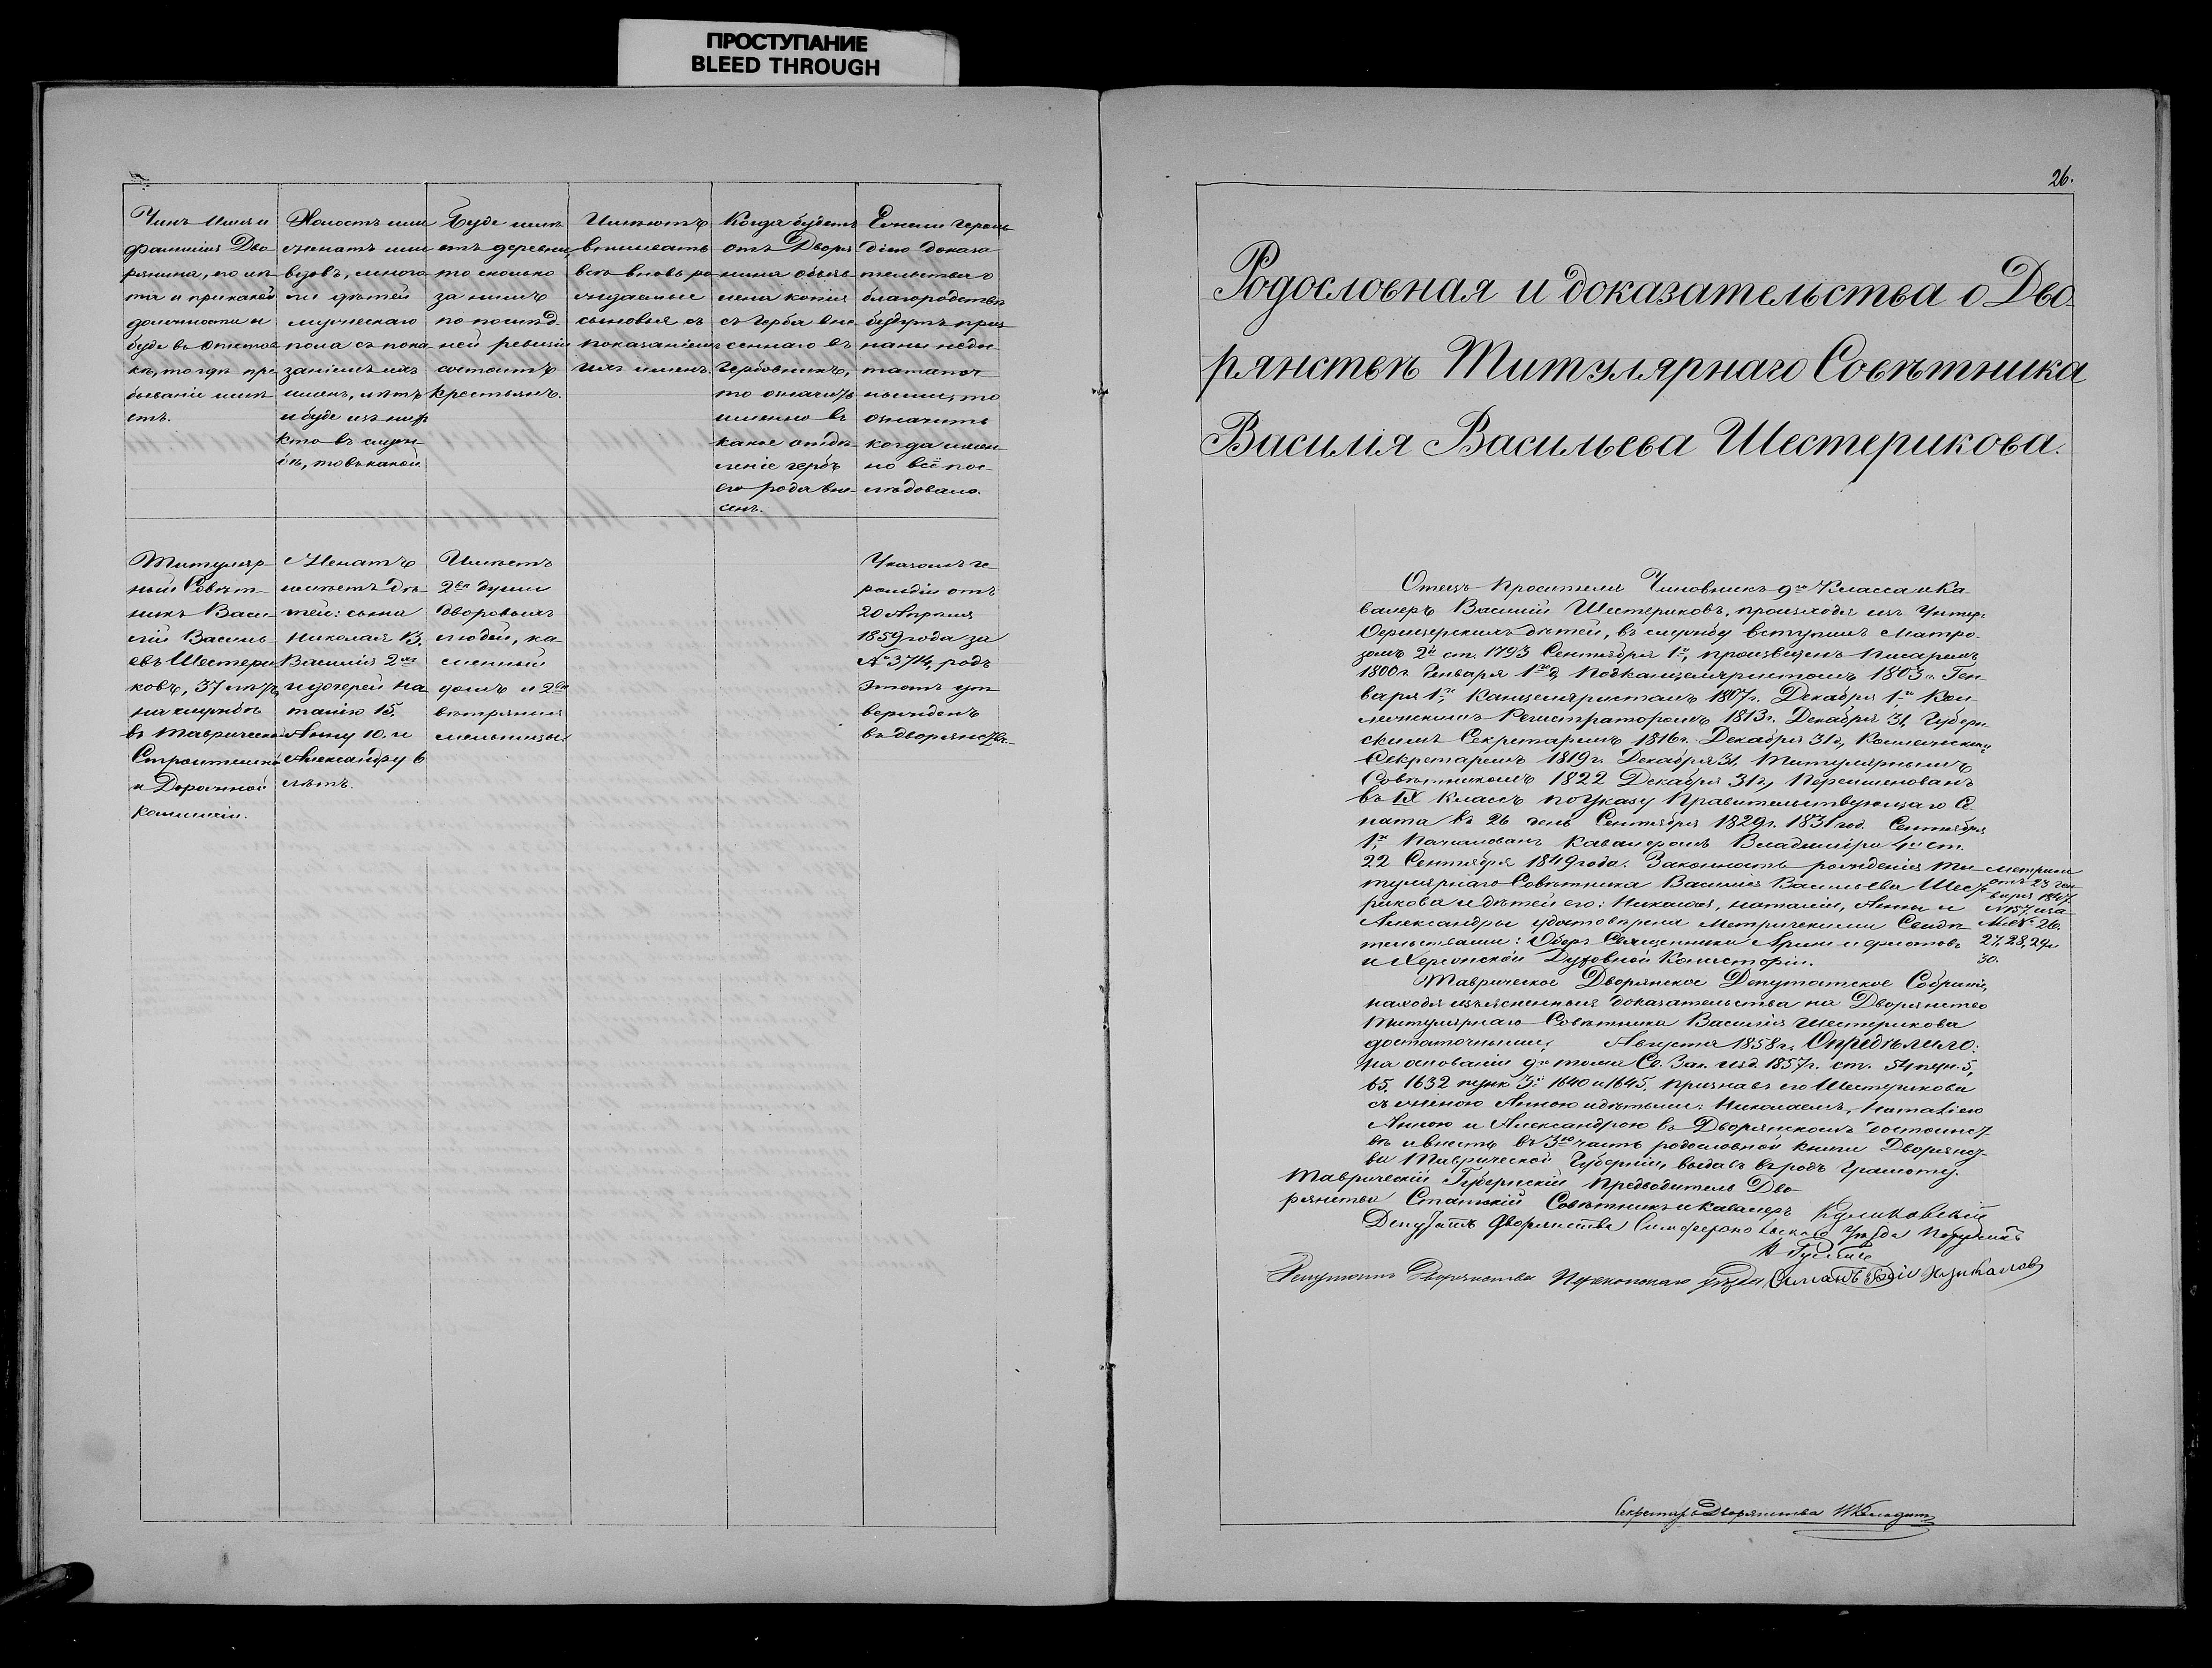 ПРОСТУПАНИЕ
BLEED THROUGH
Чинъ Имя и
фамилія Дво-
рянина, его лѣ-
та и при какой
должности и
буде въ отстав-
кѣ, то гдѣ пре-
бываніе имѣ-
етъ.
Холостъ или
женатъ или
вдовъ, много
ли дѣтей
мужескаго
пола съ пока-
заніемъ ихъ
именъ, лѣтъ
и буде изъ нихъ
кто въ служ-
бѣ, то въ какой
Буде имѣ-
етъ деревни,
то сколько
за нимъ
по послѣд-
ней ревизіи
состоитъ
крестьянъ.
Имѣютъ
вписывать
всѣ вновь ро-
ждаемые
сыновья съ
показаніемъ
ихъ именъ.
Когда будетъ
отъ Дворя-
нина объяв-
лена копія
съ герба вне-
сеннаго въ
Гербовникъ,
то означить
именно въ
какое отдѣ-
леніе гербъ
его рода вне-
сенъ.
Ежели героль-
діею доказа-
тельства о
благородствѣ
будутъ приз-
наны недо-
статоч-
ными, то
означить
когда имен-
но всё пос-
лѣдовало.
Титуляр-
ный Совѣт-
никъ Васи-
лій Василь-
евъ Шестери-
ковъ, 37 лѣтъ,
на службѣ
въ Таврической
Строительной
и Дорожной
Коммисіи.
Женатъ
имѣетъ дѣ-
тей: сына
Николая 13,
Василія 2хъ
и дочерей На-
талію 15,
Анну 10. и
Александру 6
лѣтъ.
Имѣетъ
2вѣ души
дворовыхъ
людей, ка-
менный
домъ и 2вѣ
вѣтряныя
мельницы
Указомъ ге-
рольдіи отъ
20 Апрѣля
1859 года за
№ 3714, родъ
этотъ ут-
вержденъ
въ дворянствѣ.
26.
Родословная и доказательства о Дво-
рянствѣ Титулярнаго Совѣтника
Василія Васильева Шестерикова.
Отецъ просителя Чиновникъ 9го Класса и Ка-
валеръ Василій Шестериковъ, происходя изъ Унтеръ-
Офицерскихъ дѣтей, въ службу вступилъ Матро-
зомъ 2й ст. 1793 Сентября 1го, произведенъ писаремъ
1800 г. Генваря 1го, Подканцеляристомъ 1803 г. Ген-
варя 1го, Канцеляристомъ 1807 г. Декабря 1го, Кол-
лежскимъ Регистраторомъ 1813 г. Декабря 31, Губерн-
скимъ Секретаремъ 1816 г. Декабря 31го, Коллежскимъ
Секретаремъ 1819 г. Декабря 31, Титулярнымъ
Совѣтникомъ 1822 Декабря 31го, Переименованъ
въ IX классъ по Указу Правительствующаго Се-
ната въ 26 день Сентября 1829 г. 1831 год. Сентября
1го, пожалованъ Кавалеромъ Владиміра 4й ст.
22 Сентября 1849 года. Законность рожденія Ти-
тулярнаго Совѣтника Василія Васильева Шесте-
рикова и дѣтей его: Николая, Наталіи, Анны и
Александры удостовѣрена Метрическими Свидѣ-
тельствами: Оберъ Священника Арміи и флотовъ
и Херсонской Духовной Консисторіи.
Метрики
отъ 23 Ген-
варя 1847.
№ 157. и за
№№ 26.
27, 28, 29 и
30.
Таврическое Дворянское Депутатское Собраніе,
находя изъясненныя доказательства на Дворянство
Титулярнаго Совѣтника Василія Шестерикова
достаточными, Августа 1858 г. Опредѣлило:
На основаніи 9го тома Св. Зак. изд. 1857 г. ст. 54 пун. 5,
65, 1632 пунк. 3й 1640 и 1645, признавъ его Шестерикова
съ женою Анною и дѣтьми: Николаемъ, Наталіею
Анною и Александрою въ Дворянскомъ достоинст-
вѣ и внесть въ 3ю часть родословной книги Дворянст-
ва Таврической Губерніи, выдавъ въ родъ Грамоту.
Таврическій Губернскій Предводитель Дво-
рянства Статскій Совѣтникъ и Кавалеръ
Депутатъ Дворянства Симферопольскаго Уѣзда Поручикъ
Депутатъ Дворянства Перекопскаго уѣзда
Секретарь Дворянства